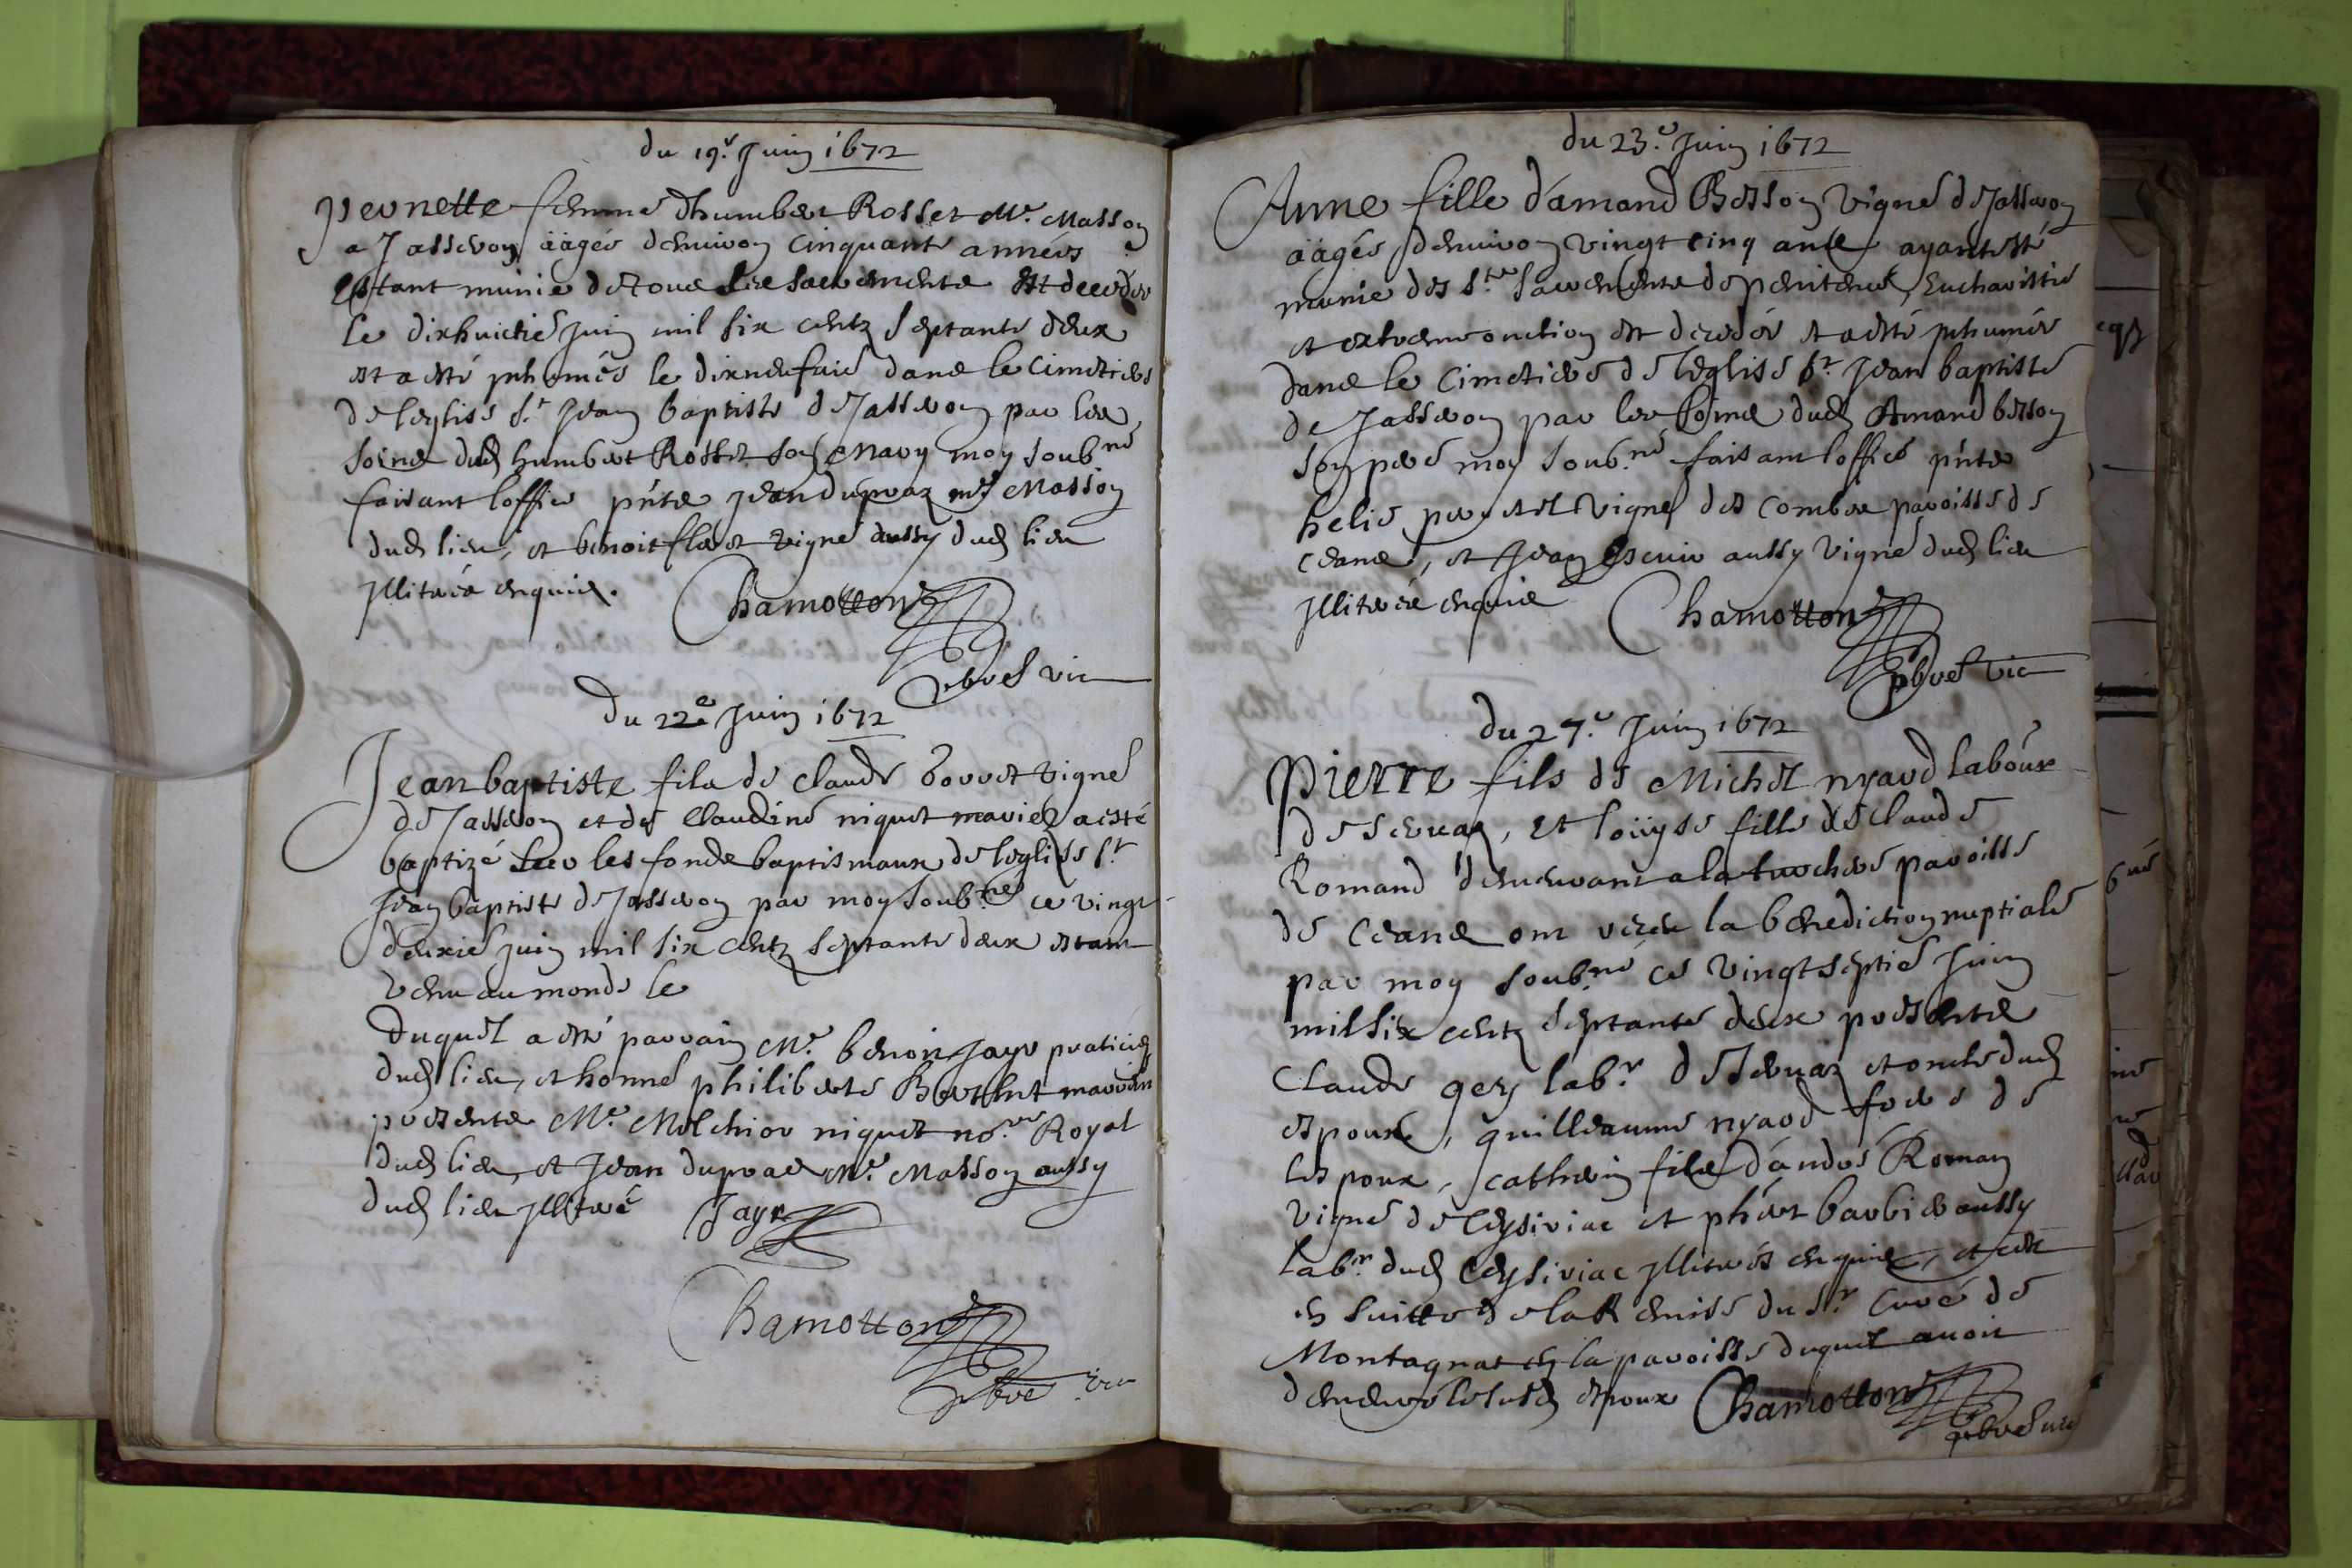 du 19.e Juin 1672
Pernette femme dhumbert Rosset Me. Masson
a Jasseron äagée denuiron cinquante années
Estant munie de tous les sacrements est decedée
le dixhuictie Juin mil six centz septante deux
et a esté jnhumée le dixneufuie dans le cimetiere
de leglise St Jean baptiste de Jasseron par les
soins dud humbert Rosset son Mary moy soubné
faisant loffice pñts Jean dupraz me Masson
dud lieu, et benoist vigne aussy dud lieu
jllitérés enquis. Chamotton
pbre vic
Du 22e Juin 1672
Jean baptiste fils de claude borret vigne
de Jasseron et de Claudine niquet mariez a esté
baptizé sur les fonds baptismaux de leglise St
Jean baptiste de Jasseron par moy soub.né ce vingt
deuxie juin mil six centz septante deux estant
venu au monde le
Duquel a esté parrain Me. benoit Jayr praticien
dud lieu, et honne philiberte marrine
presents Me. Melchior niquet no.re Royal
dud lieu, et Jean dupras Me. Masson aussy
dud lieu jllitéré Jayr
Chamotton
pbre vic
du 23.e Juin 1672
Anne fille d'amand Besson Vigne de Jasseron
äagée denuiron vingt cinq ans ayant esté
munie des Sts sacrements de penitence, Eucharistie
et extremeonction est decedée et a esté jnhumée
dans le cimetiere de leglise St Jean baptiste
de Jasseron par les soins dud Amand besson
son pere moy soub.né faisant loffice pñts
helie vigne des combes paroisse de
ceans, et Jean Escuir aussy vigne dud lieu
jllitérés enquis Chamotton
pbre vic
du 27.e Juin 1672
Pierre fils de Michel nyaod labour
de seruas, et loüyse fille de claude
Romand demeurant a la paroisse
de ceans ont receu la benediction nuptiale
par moy soub.né ce vingt septie Juin
mil six centz septante deux presents
Claude gey lab.r de seruas et oncle dud
espoux, guilleaume nyaod frere de
lespoux, cathrin fils d'andré Roman
vigne de Ceysiriac et phert barbier aussy
lab.r dud Ceysiriac jllitérés enquis, et ce
en suitte de la Remise du Sr. Curé de
Montagnat en la paroisse duquel auoit
demeuré le susd espoux Chamotton
pbre vic